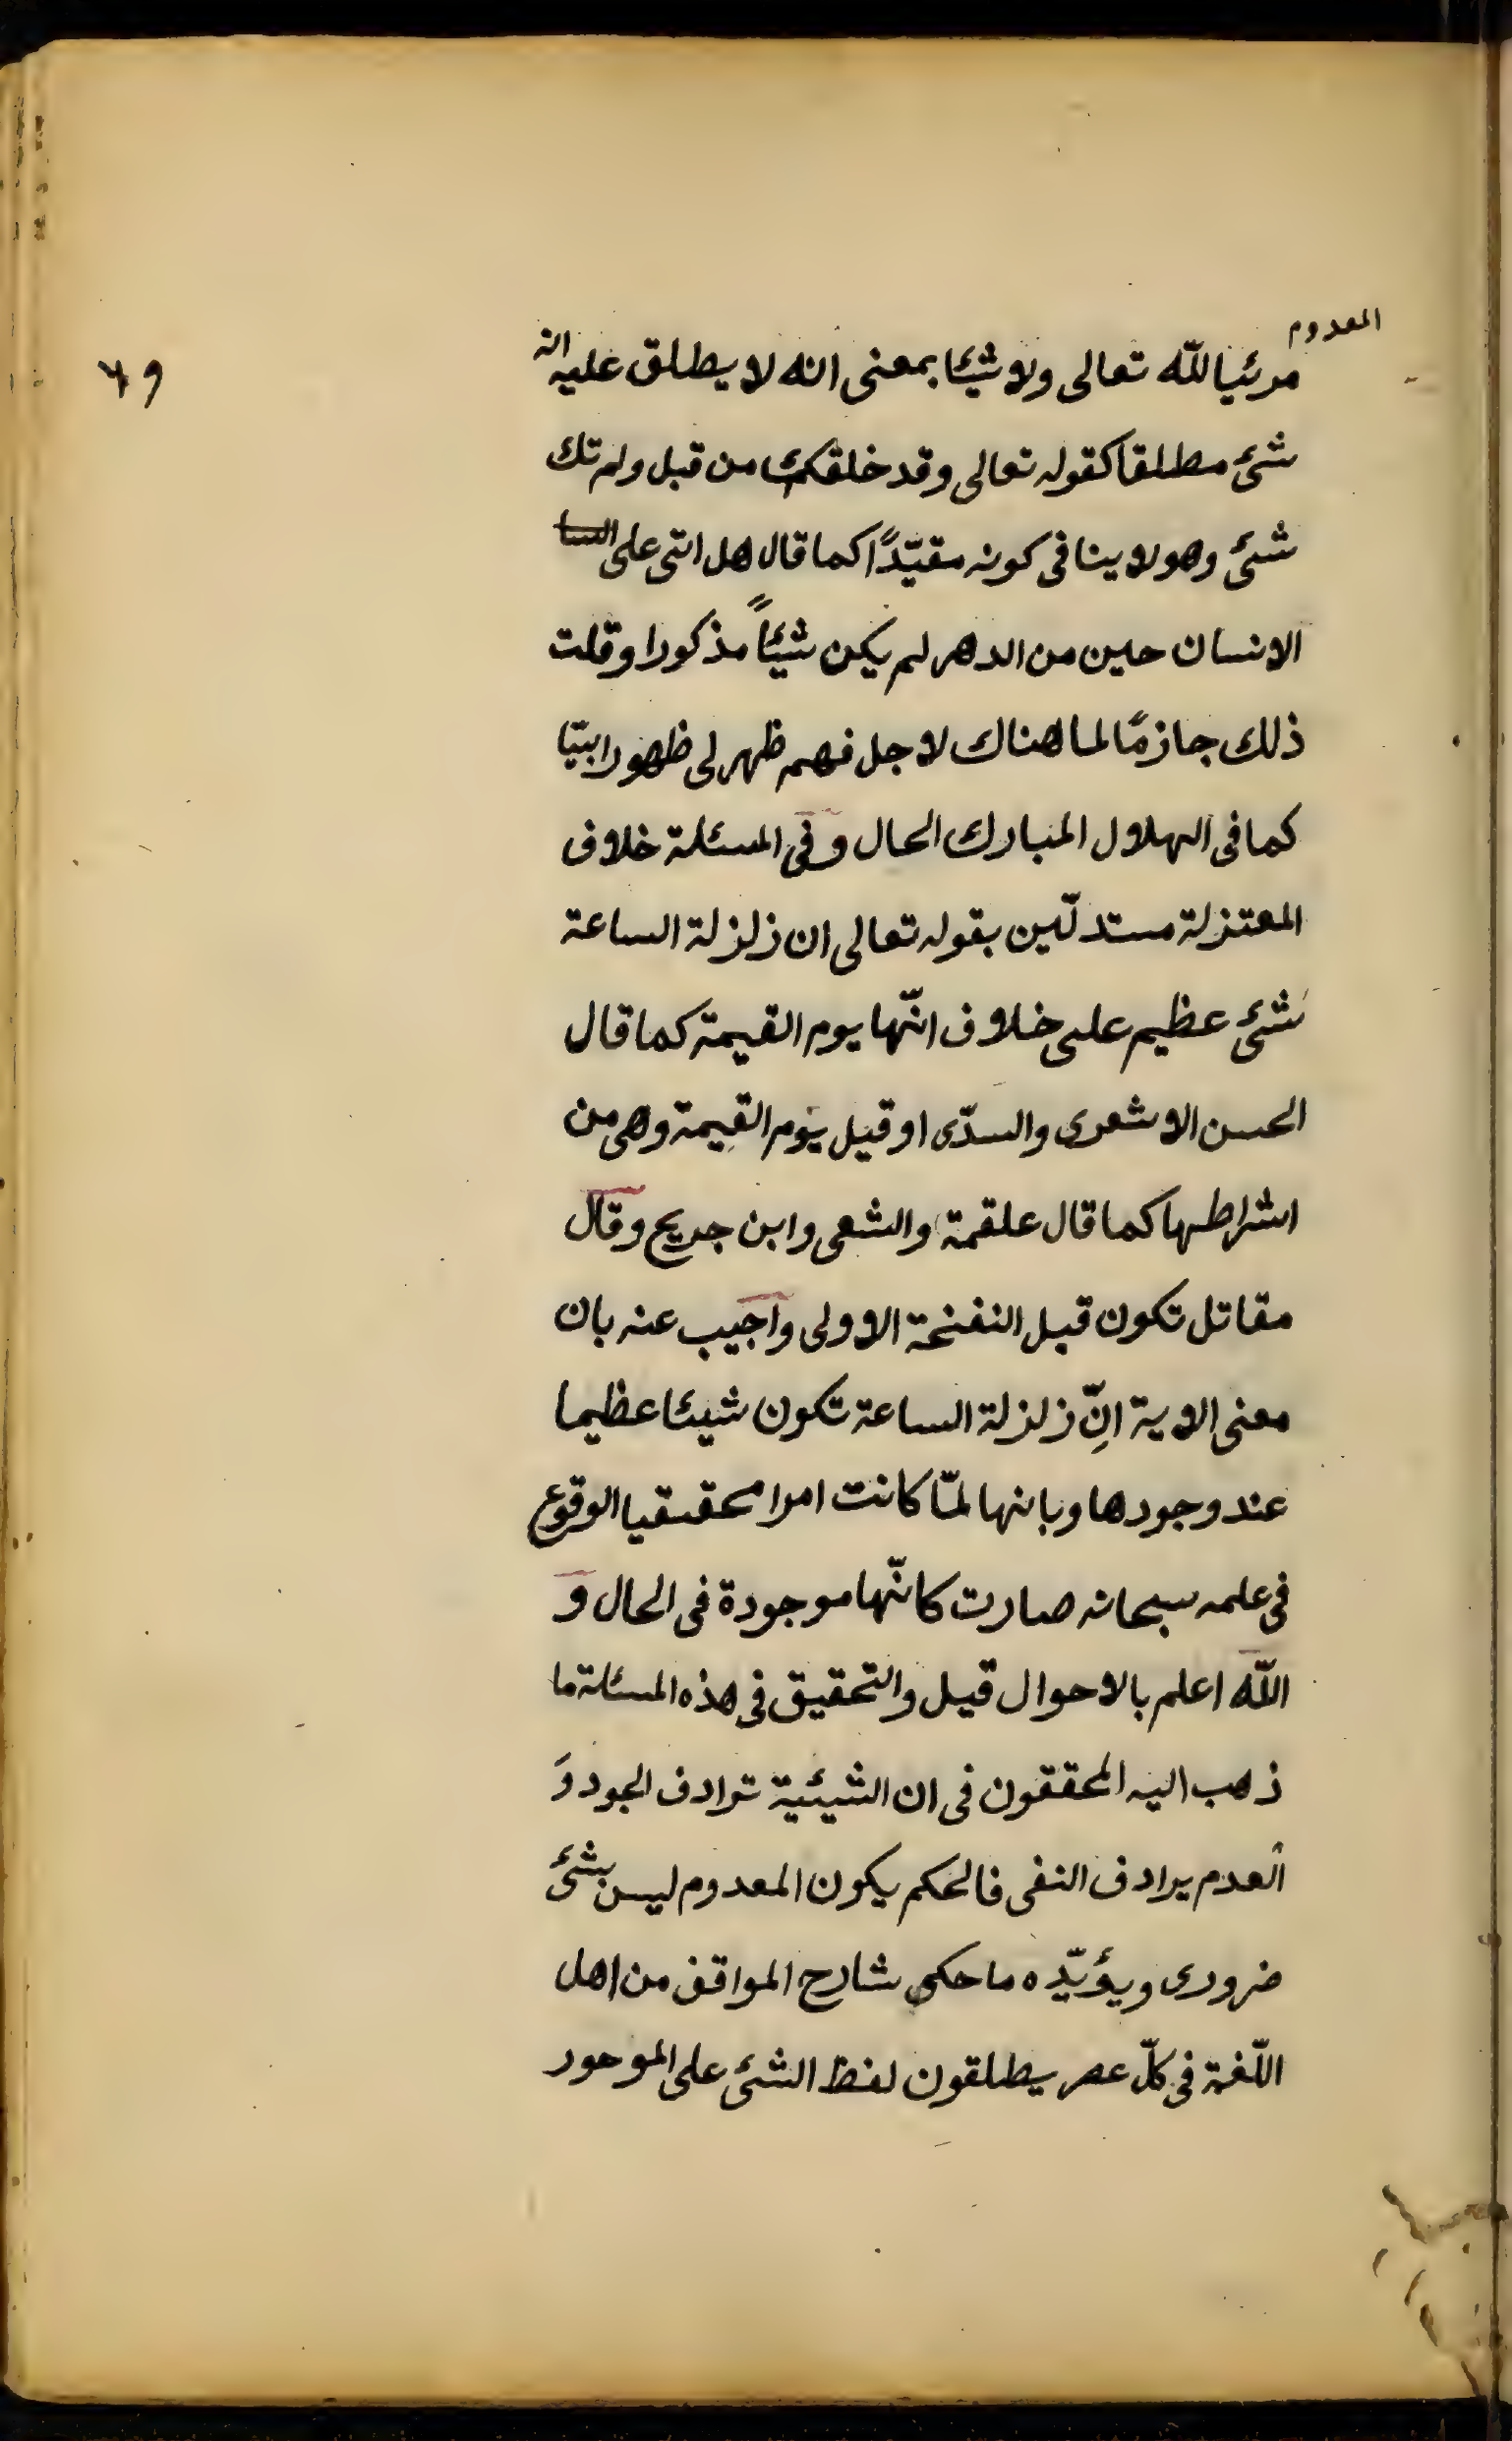 المعدوم
٦٩
مرئيا لله تعالى ولا شيئا بمعنى انه لا يطلق عليه انه
شئ مطلقا كقوله تعالى وقد خلقكم من قبل ولم تك
شئ وهو لا ينافى كونه مقيّدًا كما قال هل اتى على
الانسان حين من الدهر لم يكن شيئاً مذكورا وقلت
ذلك جازمًا لما هناك لاجل فهم ظهر لى ظهورا بيّنا
كما فى الهلال المبارك الحال وفى المسئلة خلاف
المعتزلة مستدلّين بقوله تعالى ان زلزلة الساعة
شئ عظيم على خلاف انّها يوم القيمة كما قال
الحسن الاشعرى والسدّى او قيل يوم القيمة وهى من
اشراطها كما قال علقمة والشعبى وابن جريج وقال
مقاتل تكون قبل النفخة الاولى واجيب عنه بان
معنى الاية انّ زلزلة الساعة تكون شيئا عظيما
عند وجودها وبانها لمّا كانت امرا محققيا الوقوع
فى علمه سبحانه صارت كانّها موجودة فى الحال و
الله اعلم بالاحوال قيل والتحقيق فى هذه المسئلة ما
ذهب اليه المحققون فى ان الشيئية ترادف الجود و
العدم يرادف النفى فالحكم يكون المعدوم ليس بشئ
ضرورى ويؤيّده ما حكى شارح المواقف من اهل
اللّغة فى كلّ عصر يطلقون لفظ الشئ على الموجود